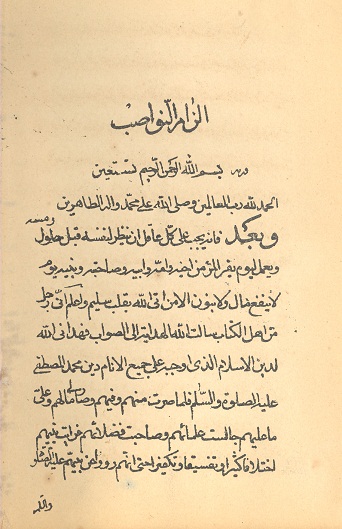 الزام النواصب
بسم الله الرحمن الرحيم نستعين
الحمد لله رب العالمين وصلى الله على محمد واله الطاهرين
وبعد فانه يجب على كل عاقل ان ينظر لنفسه قبل حلول رمسه
ويعمل ليوم يفر المرء من اخيه وامه وابيه وصاحبته وبنيه يوم
لا ينفع مال ولا بنون الا من اتى الله بقلب سليم واعلم انى رجل
من اهل الكتاب سالت الله الهداية الى الصواب فهدانى الله
لدين الاسلام الذى اوجبه على جميع الانام دين محمد المصطفى
عليه الصلوة والسلم فلما صرت منهم وفيهم وصار مالهم وعلى
ما عليهم جالست علمائهم وصاحبت فضلائهم فرايت بينهم
اختلافا كثيرا وتفسيقا وتكفيرا حتى انهم رووا عن نبيهم عليه